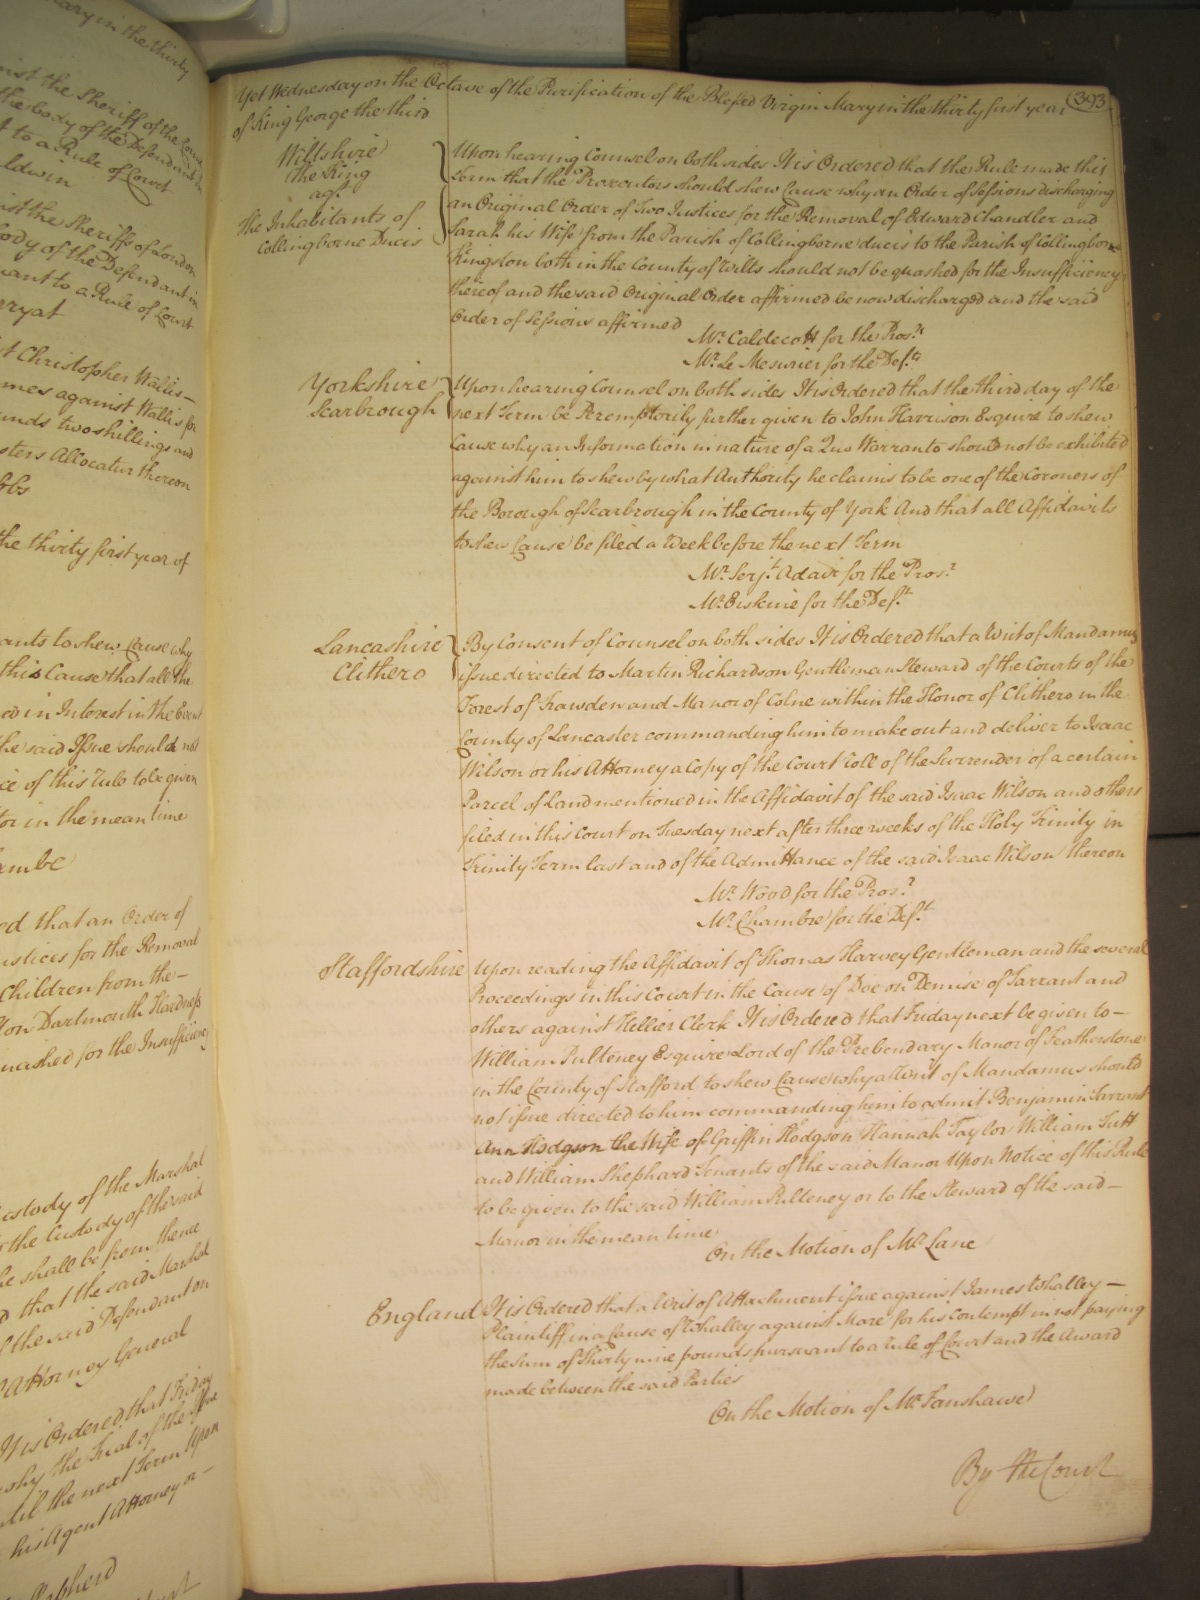 Yet Wednesday on the Octave of the Purification of the Blessed Virgin Mary in the thirty first year 393
of King George the third
Wiltshire
The King
agt.
The Inhabitants of
Collingborne Ducis
Upon hearing Counsel on both sides It is Ordered that the Rule made this
Term that the Prosecutors should shew Cause why an Order of Sessions discharging
an Original Order of Two Justices for the Removal of Edward Chandler and
Sarah his Wife from the Parish of Collingborne ducis to the Parish of Collingborne
Kingston both in the County of Wilts should not be quashed for the Insufficiency
thereof and the said Original Order affirmed be now discharged and the said
Order of Sessions affirmed
Mr. Caldecott for the Prosr.
Mr. Le Mesurier for the Defts.
Yorkshire
Scarbrough
Upon hearing Counsel on both sides It is Ordered that the third day of the
next Term be Peremptorily further given to John Harrison Esquire to shew
Cause why an Information in nature of a Quo Warranto should not be exhibited
against him to shew by what Authority he claims to be one of the Coroners of
the Borough of Scarbrough in the County of York And that all Affidavits
to shew Cause be filed a Week before the next Term
Mr. Serjt. Adair for the Prosr.
Mr. Erskine for the Deft.
Lancashire
Clithero
By Consent of Counsel on both sides It is Ordered that a Writ of Mandamus
issue directed to Martin Richardson Gentleman Steward of the Courts of the
Forest of Trawden and Manor of Colne within the Honor of Clithero in the
County of Lancaster commanding him to make out and deliver to Isaac
Wilson or his Attorney a Copy of the Court roll of the Surrender of a certain
Parcel of Land mentioned in the Affidavit of the said Isaac Wilson and others
filed in this Court on Tuesday next after three weeks of the Holy Trinity in
Trinity Term last and of the Admittance of the said Isaac Wilson thereon
Mr. Wood for the Prosr.
Mr. Chambre for the Deft.
Staffordshire
Upon reading the Affidavit of Thomas Harvey Gentleman and the several
Proceedings in this Court in the Cause of Doe on Demise of Tarrant and
others against Hellier Clerk It is Ordered that Friday next be given to –
William Pulteney Esquire Lord of the Prebendary Manor of Featherstone
in the County of Stafford to shew Cause why a Writ of Mandamus should
not issue directed to him commanding him to admit Benjamin Tarrant
Ann Hodgson the Wife of Griffin Hodgson Hannah Taylor William Tutt
and William Shephard Tenants of the said Manor Upon Notice of this Rule
to be given to the said William Pulteney or to the Steward of the said –
Manor in the mean time
On the Motion of Mr. Lane
England
It is Ordered that a Writ of Attachment issue against James Whalley –
Plaintiff in a Cause of Whalley against Mare for his Contempt in not paying
the Sum of Thirty nine pounds pursuant to a Rule of Court and the Award
made between the said Parties
On the Motion of Mr. Fanshawe
By the Court
Mary in the thirty
against the Sheriff of the
the body of the Defendant
to a Rule of Court
against the Sheriff of London
body of the Defendant in
to a Rule of Court
Christopher Wallis –
against Wallis for
two shillings and
Allocatur thereon
the thirty first year of
to shew Cause why
this Cause that all the
in Interest in the Event
the said Issue should not
of this Rule to be given
or in the mean time
that an Order of
Justices for the Removal
Children from the –
Dartmouth Hardness
quashed for the Insufficiency
custody of the Marshal
the Custody of the said
he shall be from thence
that the said Marshal
of the said Defendant on
Attorney General
It is Ordered that Friday
why the Trial of the Issue
until the next Term Upon
his Agent Attorney or –